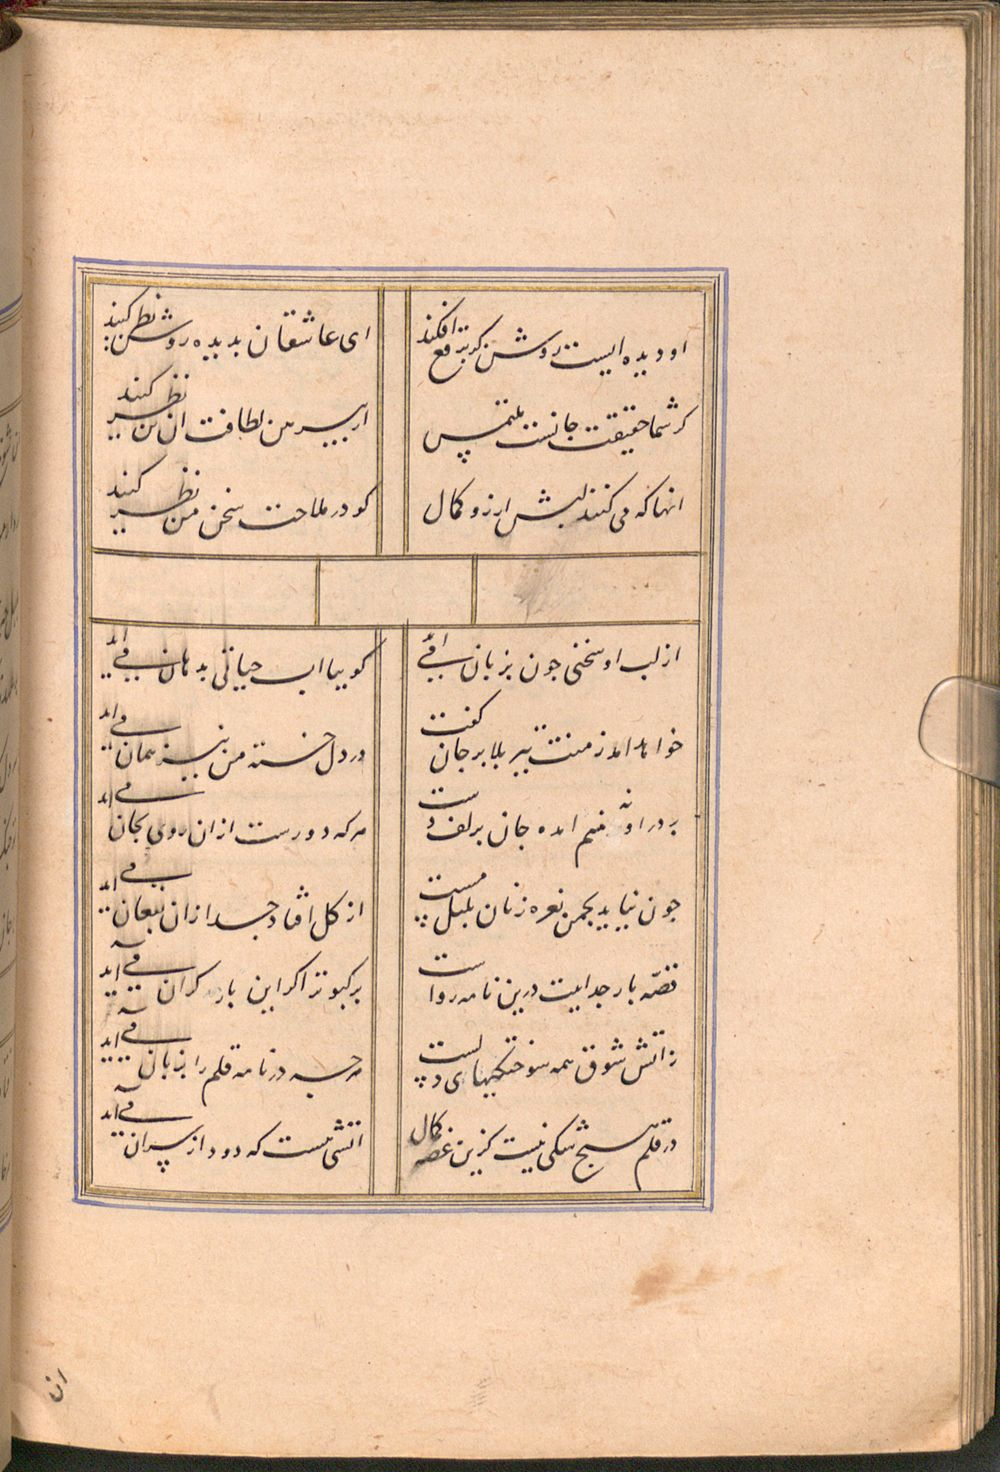 او دیده ایست روشن کر برقع افکند
ای عاشقان بدیده روشن نظر کنید
کر شما حقیقت جانست ملتمس
از پیرهن لطافت ان تن نظر کنید
انها که می کنند لبش ارزو کمال
کو در ملاحت سخن من نظر کنید
از لب او سخنی جون بزبان می اید
کوییا اب حیاتی بدهان می اید
خواهد امد زمنت تیر بلا بر جان کفت
در دل خسته من نیز همان می اید
بر در او نه منم امده جان بر کف دست
هر که دورست ازان روی بجان می اید
جون نیاید بجمن نعره زنان بلبل مست
از کل افتاد جدا زان بفغان می اید
قصه بار جداییت درین نامه رواست
بر کبوتر اکر این بار کران می اید
زاتش شوق همه سوختکیهای دلست
هر جه در نامه قلم را بزبان می اید
در قلم هیج شکی نیست کزین غصه کمال
اتشی هست که دود از سر ان می اید
ان